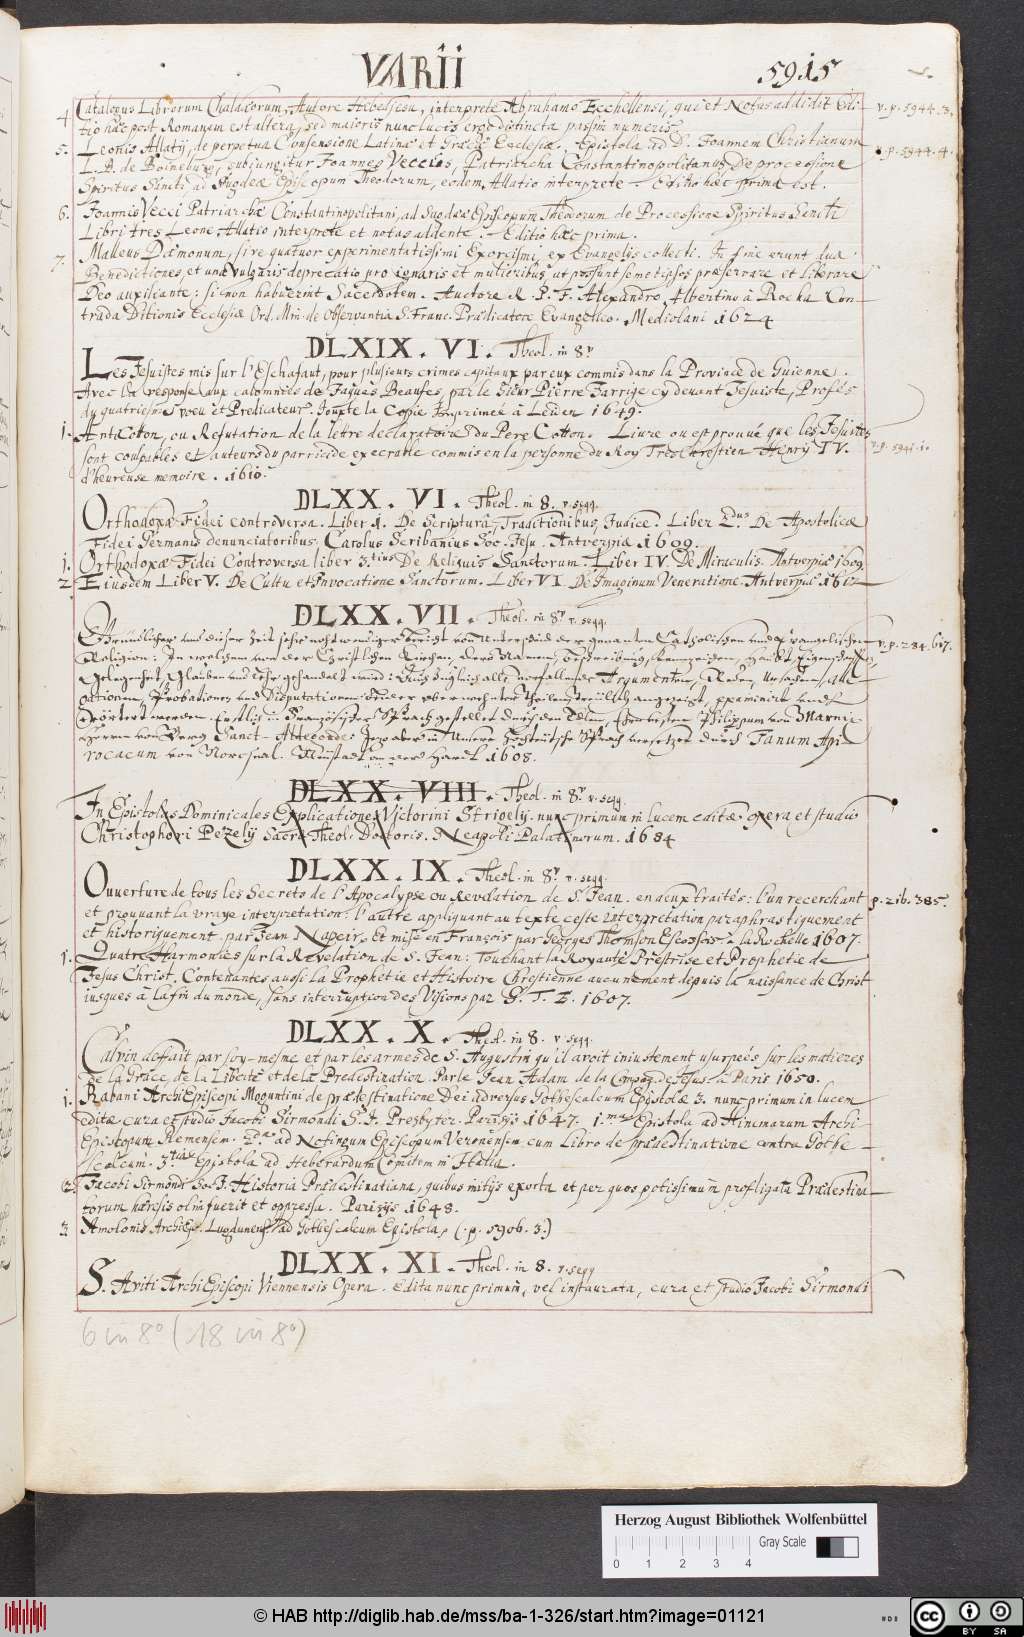 VARII 5915
4 Catalogus Librorum Chaldæorum, Autore Hebediesu, interprete Abrahamo Ecchellensi, qui et Notas addidit Edi- v. p. 5944. 3.
tio hæc post Romanam est altera, sed maioris nunc lucis ergo distincta passim numeris.
5. Leonis Allatij, de perpetua Consensione Latinæ et Græcæ Ecclesiæ, Epistola ad D. Joannem Christianum v. p. 5944. 4.
L. B. de Boineburg, subjungitur Joannes Veccius, Patriarcha Constantinopolitanus De processione
Spiritus Sancti ad Sugdeæ Episcopum Theodorum, eodem Allatio interprete. Editio hæc prima est.
6. Joannis Vecci Patriarchæ Constantinopolitani, ad Sugdeæ Episcopum Theodorum de Processione Spiritus Sancti
Libri tres Leone Allatio interprete et notas addente. Editio hæc prima.
7. Malleus Dæmonum, sive quatuor experimentatissimi Exorcismi, ex Evangelijs collecti. In fine vrunt duæ
Benedictiones, et una vulgaris deprecatio pro ignaris et mulieribus, ut possunt semetipsos præservare et Liberare
Deo auxiliante: si non habuerint Sacerdotem. Auctore A. R. P. F. Alexandro Albertino à Rocha Con-
trada Ditionis Ecclesiæ Ord. Min. de Observantia S. Franc. Prædicatore Evangelico. Mediolani 1624
DLXIX. VI. Theol. in 8º
Les Jesuistes mis sur l'Eschafaut, pour plusieurs crimes capitaux par eux commis dans la Province de Guienne.
Avec la response aux calomnies de Jaques Beaufes, par le Sieur Pierre Jarrige cy devant Jesuiste, Profés
du quatriesme voeu et Predicateur. Jouxte la Copie Imprimee à Leiden 1649.
1. AntiCotton, ou Refutation de la lettre declaratoire du Pere Cotton. Livre ou est prouvé que les Jesuites v. p. 5941. 1.
sont coulpables et auteurs du parricide execrable commis en la personne du Roy Tres Chrestien Henry IV.
d'heureuse memoire. 1610.
DLXX. VI. Theol. in 8. v. segg.
Orthodoxæ Fidei controversa. Liber 1. De Scriptura, Traditionibus, Judice. Liber 2dus De Apostolicæ
Fidei Germanis denunciatoribus. Carolus Scribanius Soc. Jesu. Antverpiæ 1609.
1. Orthodoxæ Fidei Controversa liber 3.tius De Reliquis Sanctorum. Liber IV. De Miraculis. Antverpiæ 1609.
2 Eiusdem Liber V. De Cultu et Invocatione Sanctorum. Liber VI De Imaginum Veneratione. Antverpiæ 1612
DLXX. VII. Theol. in 8º v. segg.
Gründlicher und dieser Zeit sehr nothwendiger Bericht von Unterscheid der genanten Catholischen und Evangelischen v. p. 284. 617.
Religion: In welchem von der Christlichen Kirchen, dero Namen, Beschreibung, Kennzeichen, Haubt, Eigenschafften,
Gelegenheit, Glauben und Lehr gehandelt wird: Auch dagleich alle vorfallende Argumenten, Reden, Ursachen, Alle-
gationen, Probationen und Disputationen
Erörtert werden. Erstlich in Französischer Sprach gestellet durch den Edlen, Philippum von Marnix
Herrn von Berg Sanct-Aldegonde. Jezo aber in Unsere Hochteütsche Sprach versetzet durch Janum Api-
rocacum von Norcseal. Neustadt an der Hardt 1608.
DLXX. VIII. Theol. in 8º v. segg.
In Epistolas Dominicales Explicationes Victorini Strigelij. nunc primum in lucem editæ opera et studio
Christophori Pezelij Sacræ Theol. Doctoris. Neapoli Palatinorum. 1684
DLXX. IX. Theol. in 8º v. segg.
Ouverture de tous les Secrets de l'Apocalypse ou Revelation de S. Jean. en deux traités: l'un recerchant p. 216. 385.
et prouvant la vraye interpretation. l'autre appliquant au texte ceste Interpretation paraphrastiquement
et historiquement par Jean Napeir, Et mise en François par Georges Thomson Escossois. à la Rochelle 1607.
1. Quatre Harmonies sur la Revelation de S. Jean: Touchant la Royauté Prestrise et Prophetie de
Jesus Christ. Contenantes aussi la Prophetie et Histoire Chrestienne aucunement depuis la naissance de Christ
iusques à la fin du monde, sans interruption des Visions par G. T. E. 1607.
DLXX. X. Theol. in 8. v. segg.
Calvin deffait par soy-mesme et par les armes de S. Augustin qu'il avoit iniustement usurpeés sur les matieres
de la Grace, de la Liberté et de la Predestination. Par le Jean Adam de la Compag. de Jesus. à Paris 1650.
1. Rabani ArchiEpiscopi Moguntini de prædestinatione Dei adversus Gothescalcum Epistolæ 3. nunc primum in lucem
editæ cura et studio Jacobi Sirmondi S. J. Presbyter. Parisijs 1647. 1.ma Epistola ad Hincmarum Archi-
Episcopum Remensem. 2da ad Notingum Episcopum Veronensem cum Libro de prædestinatione contra Gothe-
scalcum. 3.tia Epistola ad Heberardum Comitem in Italia.
2. Jacobi Sirmondi Soc. J. Historia Prædestinatiana, quibus initijs exorta et per quos potissimum profligata Prædestina-
torum hæresis olim fuerit et oppressa. Parisijs 1648.
3 Amolonis ArchiEp. Lugdunens. ad Gothescalcum Epistola, (. p. 5906. 3.)
DLXX. XI. Theol. in 8. v. segg
S. Aviti ArchiEpiscopi Viennensis Opera. Edita nunc primum, vel instaurata, cura et studio Jacobi Sirmondi
6 in 8º (18 in 8º)
Herzog August Bibliothek Wolfenbüttel
Gray Scale
0 1 2 3 4
© HAB http://diglib.hab.de/mss/ba-1-326/start.htm?image=01121
cc BY SA